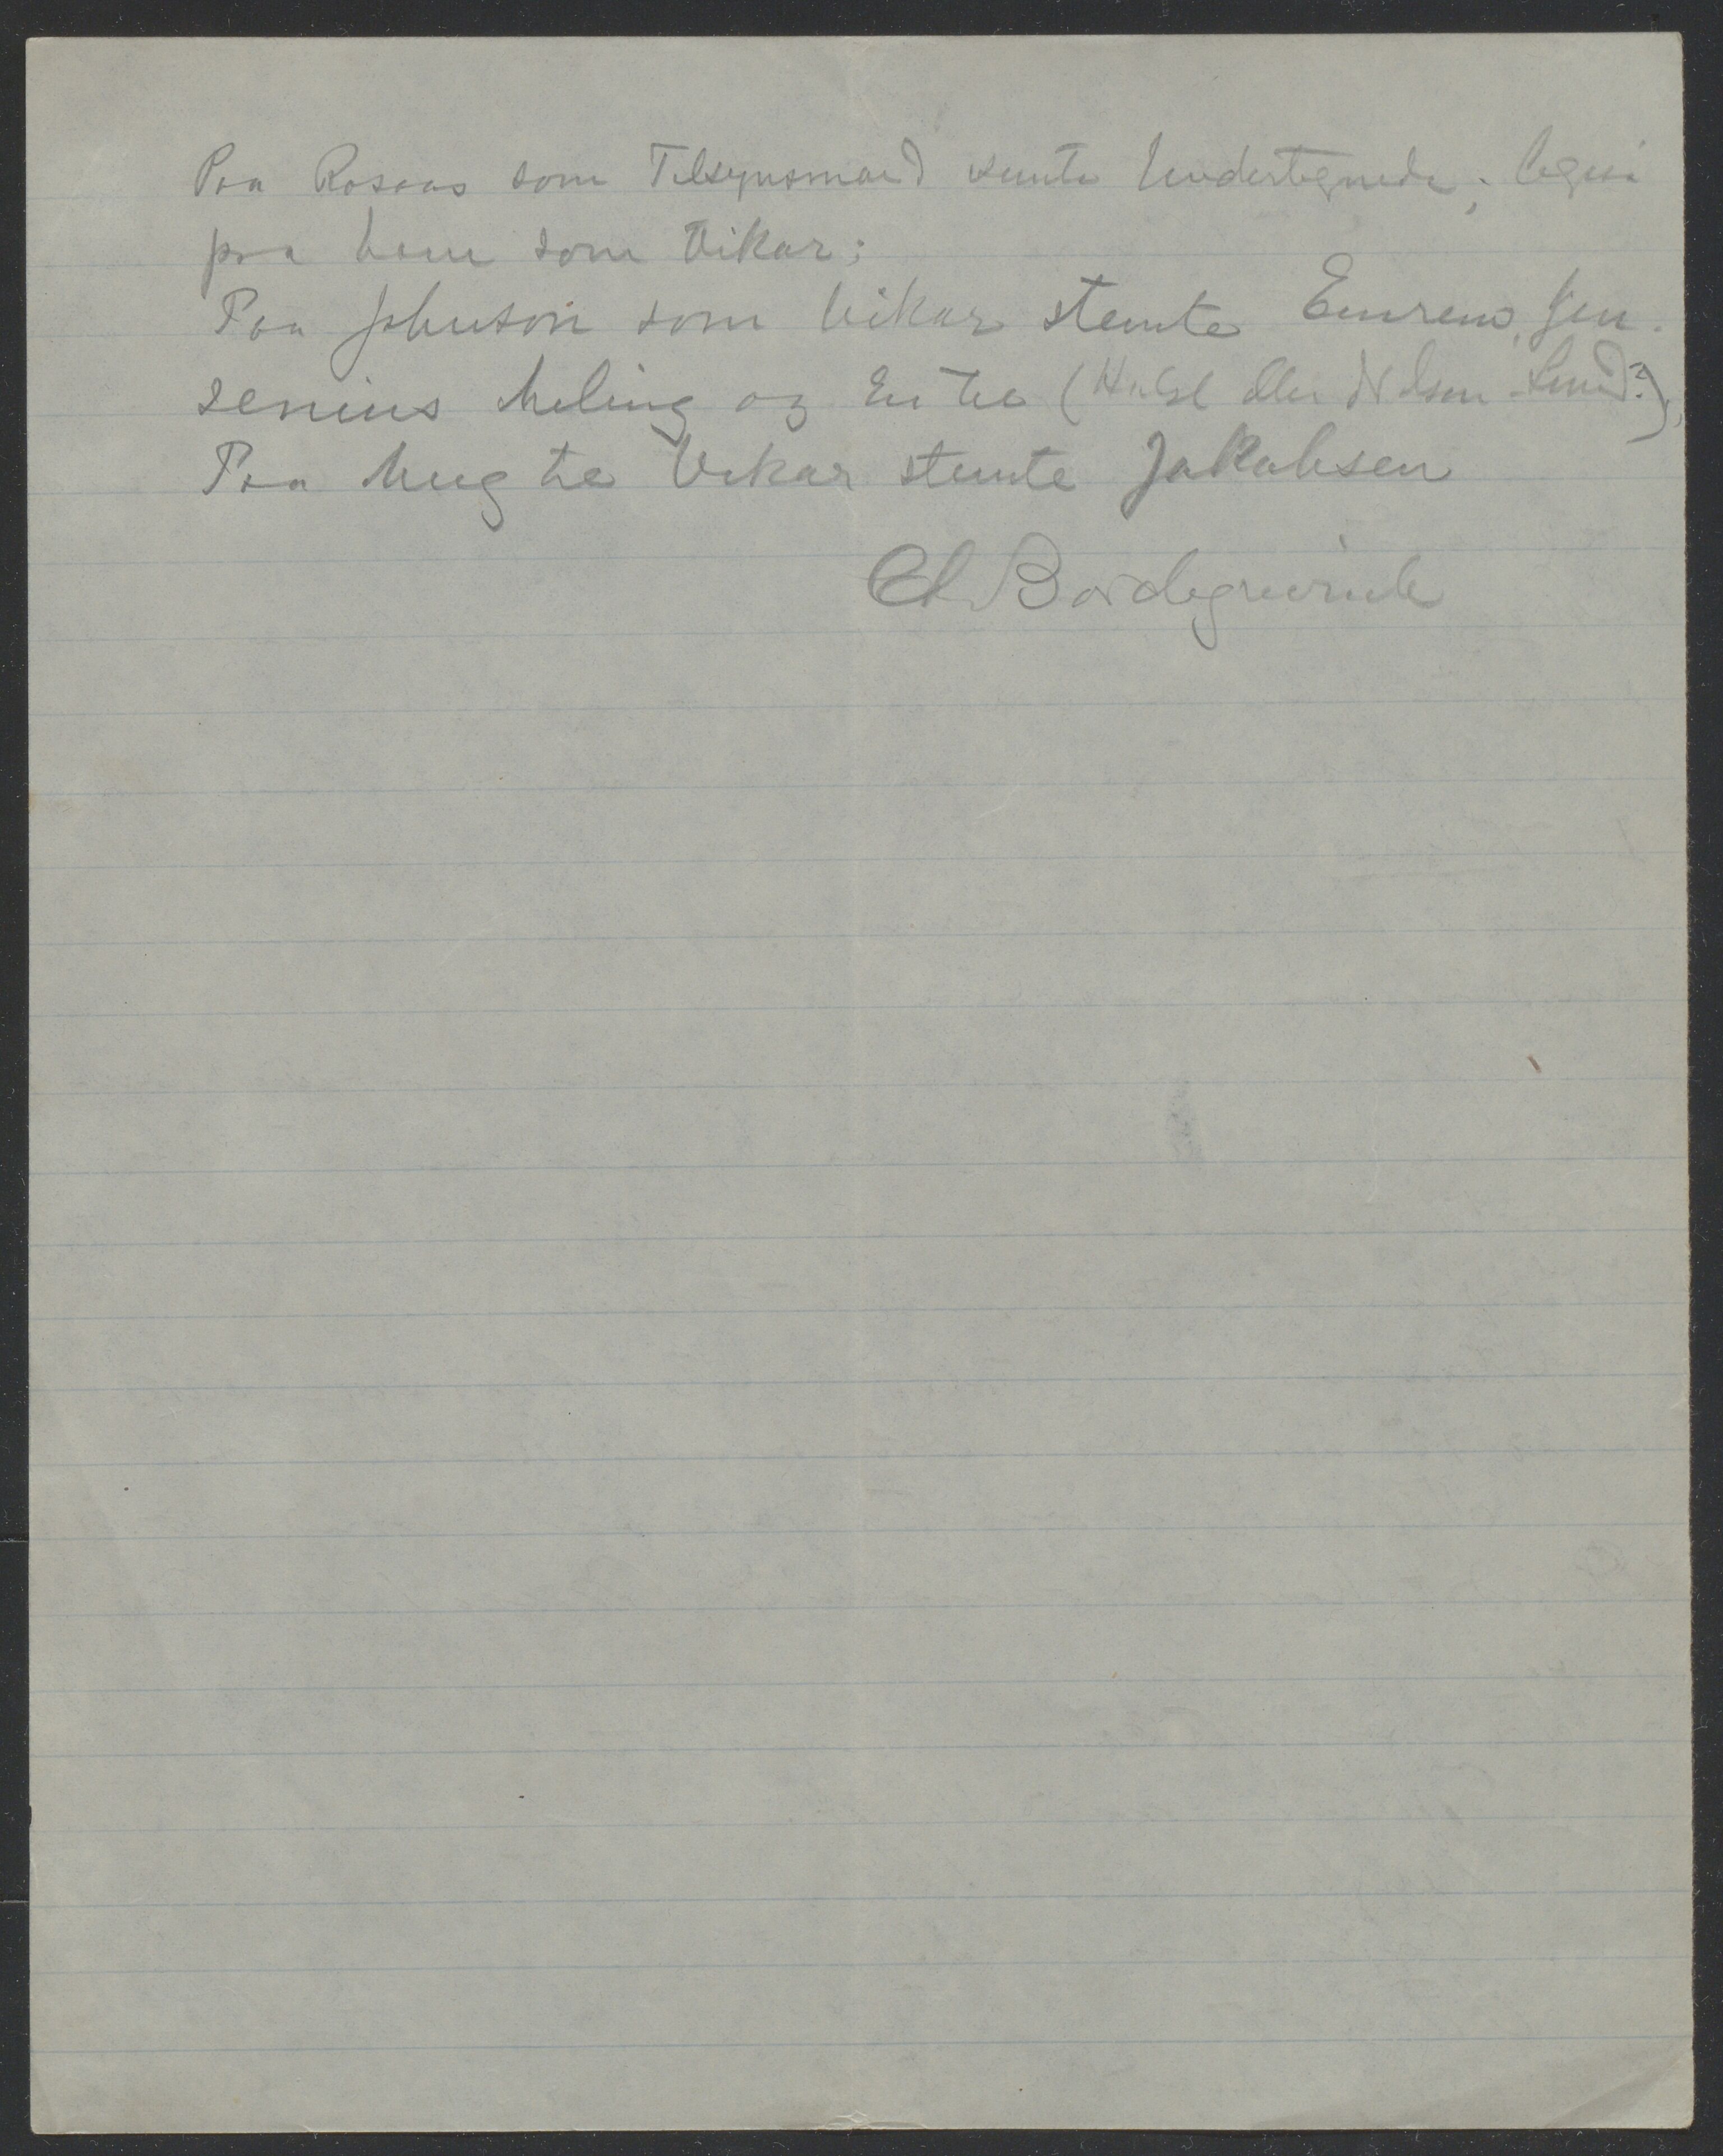 Paa Rosaas som Tilsynsmand stemte Undertegnede; ligesaa
paa ham som Vikar;
Paa Johnson som Vikar stemte Emrem, Jen-
senius Meling og En til (Hulsl eller Nilsen-Lund?),
Paa Mug til Vikar stemte Jakobsen
Chr Borchgrevink